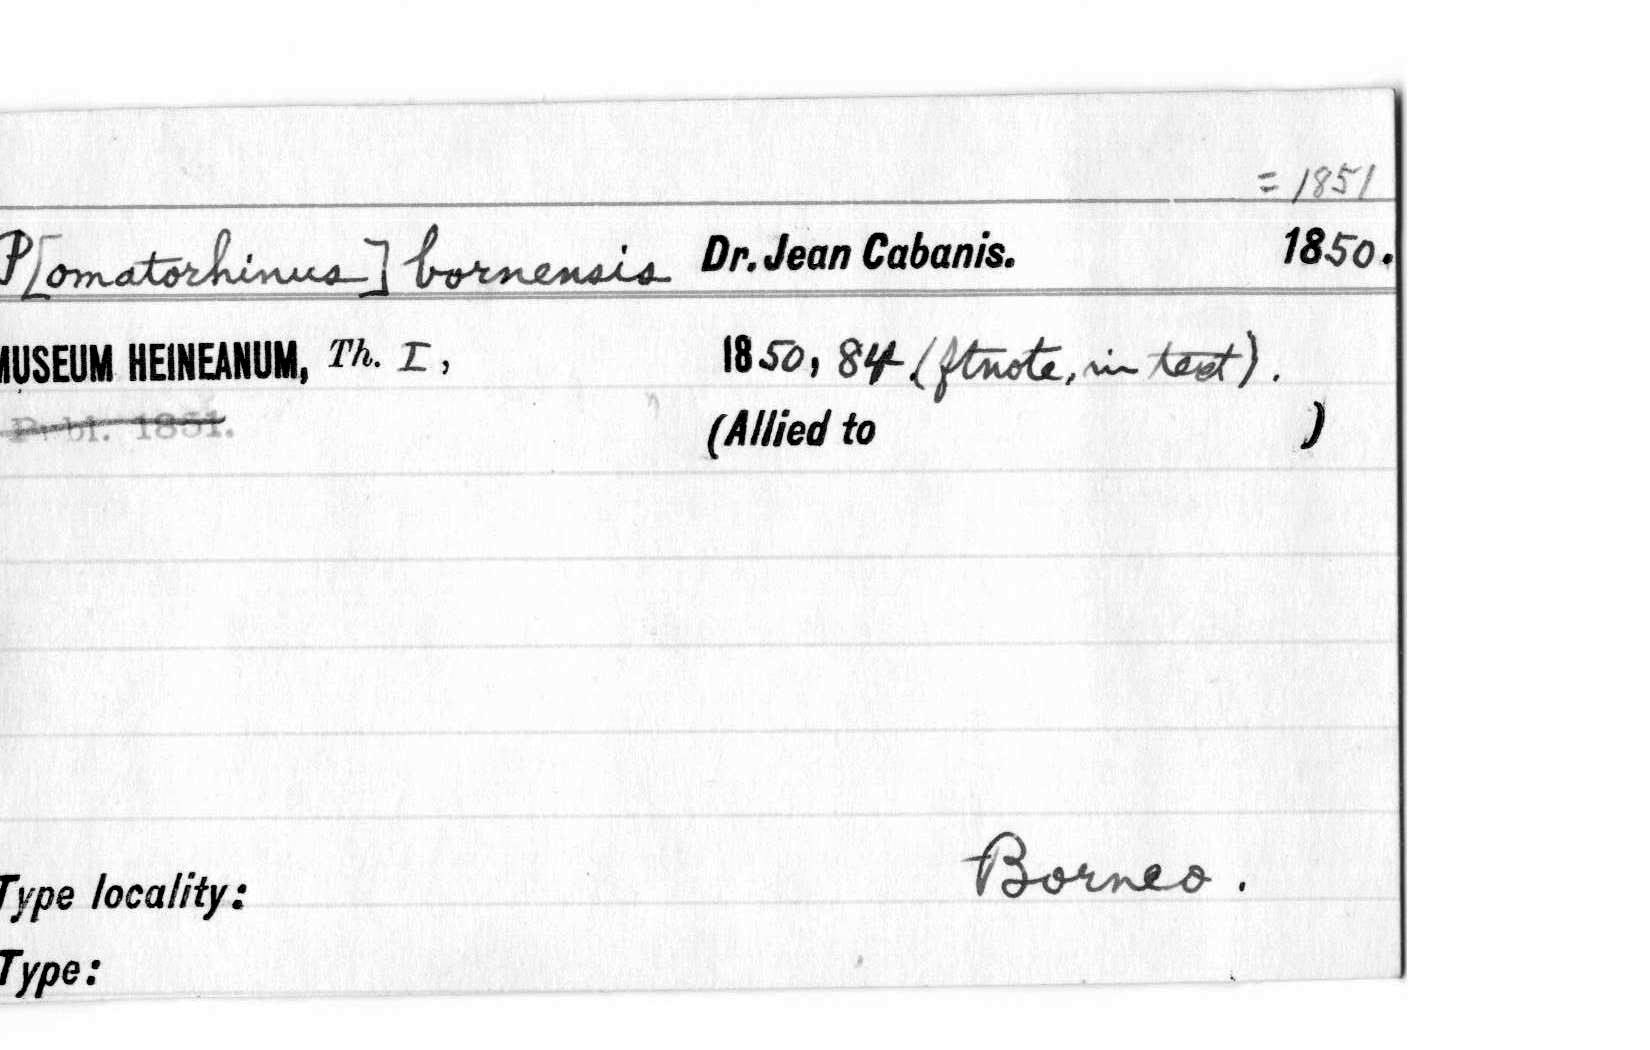 = 1851
P[omatorhinus] bornensis Dr. Jean Cabanis. 1850.
MUSEUM HEINEANUM, Th. I, 1850, 84 (ftnote, in text).
Publ. 1851. (Allied to )
Type locality: Borneo.
Type: